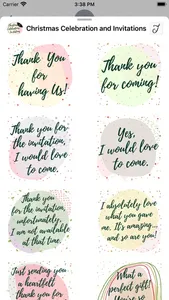 3:38 PM
Christmas Celebration and Invitations
Thank You
for
having Us!
Thank you
for coming!
Thank you for
the invitation,
I would love
to come.
Yes,
I would love
to come.
Thank you
for the invitation,
unfortunately,
I am not available
at that time.
I absolutely love
what you gave
me. It's amazing...
and so are you!
Just sending you
a heartfelt
thank you for
What a
perfect gift!
You're so